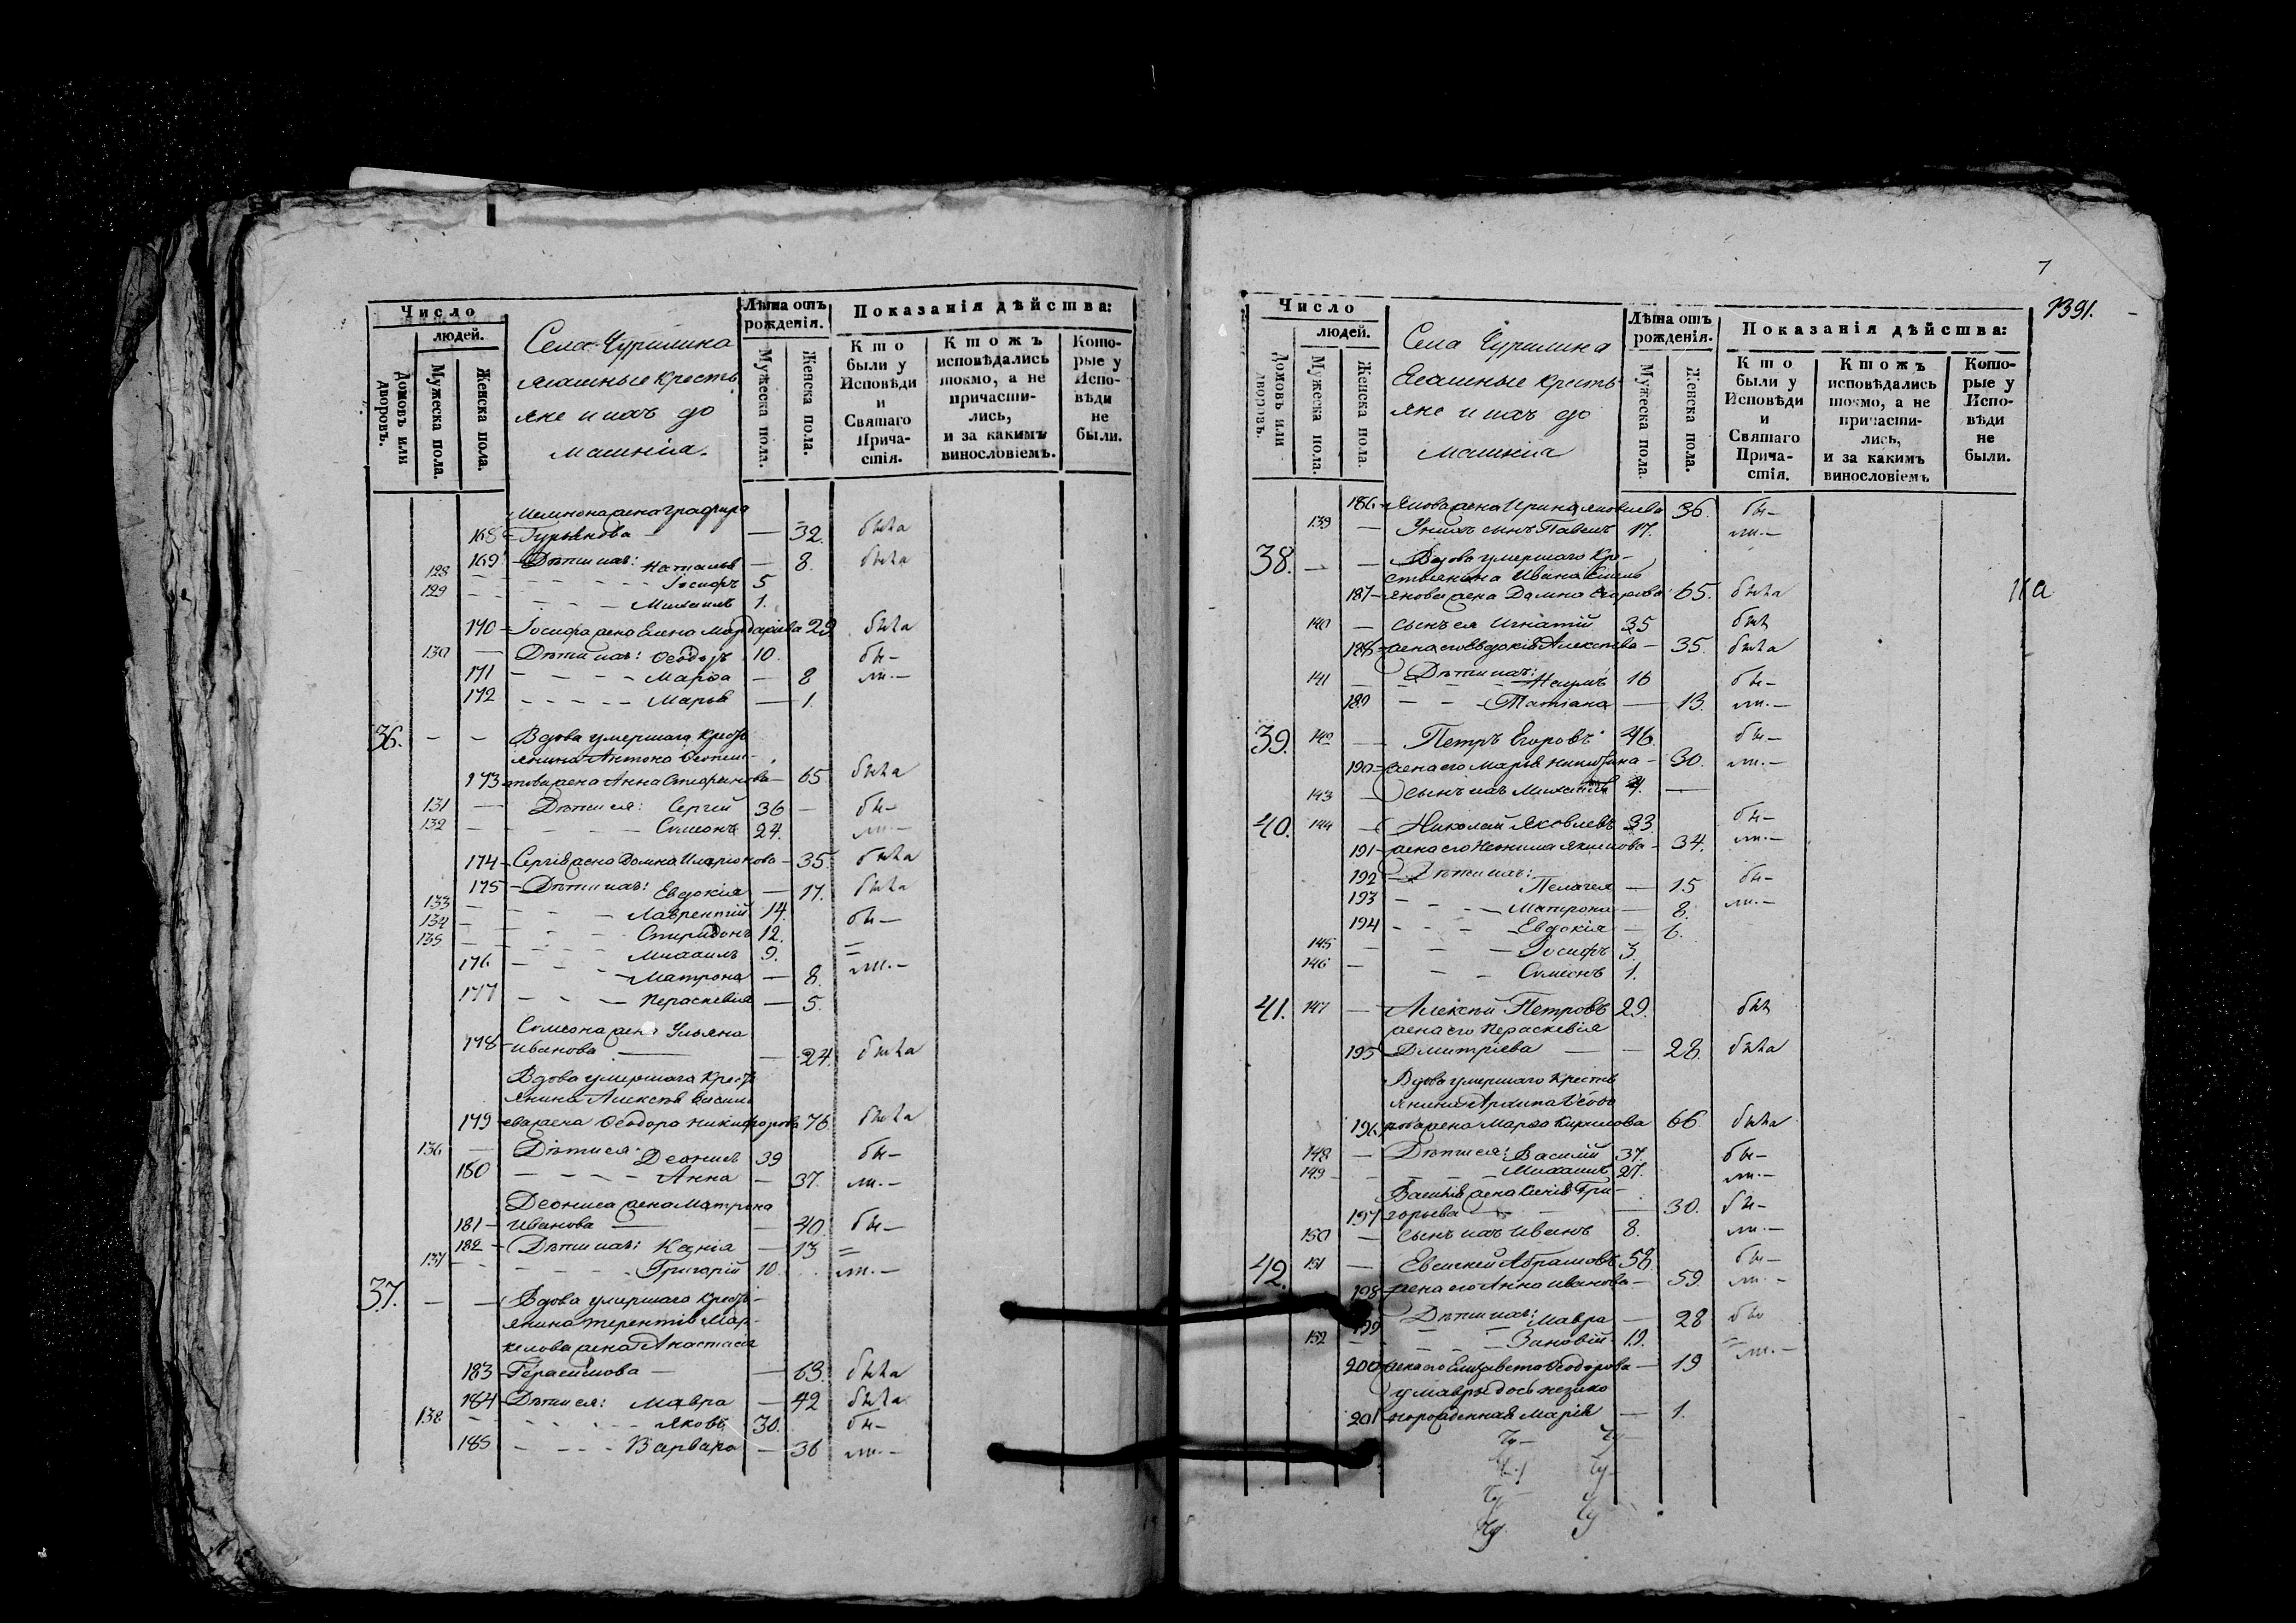 Число
людей.
Домовъ или дворовъ.
Мужеска пола.
Женска пола.
Села Чурилина
ясашные кресть
яне и ихъ до
машнiя.
Лѣта отъ рожденія.
Мужеска пола.
Женска пола.
Показанія дѣйства:
Кто были у Исповѣди и Святаго Причастія.
Ктожъ исповѣдались токмо, а не причастились, и за какимъ винословіемъ.
Которые у Исповѣди не были.
168 Гурьянова — — 32. была
169 Дѣти ихъ: Наталья — 8. была
128 — Іосифъ 5
129 — Михаилъ 1.
170 Іосифа жена Елена 29 была
130 — Дѣти ихъ: Ѳеодоръ 10. бы—
171 — Марѳа — 8 ли.—
172 — Марья — 1.
36. — — Вдова умершаго кресть
янина Антона
173 жена Анна — 65 была
131 — Дѣти ея: Сергiй 36 — бы—
132 — Симеонъ 24. ли.—
174 Сергiя жена Домна Иларионова — 35. была
175 Дѣти ихъ: Евдокiя — 17. была
133 — Лаврентiй 14. бы—
134 — Спиридонъ 12. =
135 — Михаилъ 9. =
176 — Матрона — 8. ли.—
177 — Параскевiя — 5.
Симеона жена Ульяна
178 Иванова — — 24. была
Вдова умершаго кресть
янина Алексѣя Василь
179 ева жена Ѳеодора Никифорова 76. была
136 — Дѣти ея: Деонисъ 39 бы—
180 — Анна — 37. ли.—
Деониса жена Матрона
181 Иванова — — 40. бы—
182 Дѣти ихъ: Ксенiя — 13 =
137 — Григорiй 10. ли.—
37. — — Вдова умершаго кресть
янина Терентiя Мар-
келова жена Анастасiя
183 Герасимова — — 63. была
184 Дѣти ея: Мавра — 42 была
138 — Яковъ 30. бы—
185 — Варвара — 36 ли.—
7
1391.
Число
людей.
Домовъ или дворовъ.
Мужеска пола.
Женска пола.
Села Чурилина
Ясашные кресть
яне и ихъ до
машнiя
Лѣта отъ рожденія.
Мужеска пола.
Женска пола.
Показанія дѣйства:
Кто были у Исповѣди и Святаго Причастія.
Ктожъ исповѣдались токмо, а не причастились, и за какимъ винословіемъ
Которые у Исповѣди не были.
186 Якова жена Ирина Яковлева 36. бы—
139 — У нихъ сынъ Павелъ 17. ли.—
38. — — Вдова умершаго кре-
стьянина Ивана Емель
187 янова жена Домна Егорова 65. была
140 — сынъ ея Игнатiй 35 былъ
188 жена его Евдокiя Алексѣева — 35. была
141 Дѣти ихъ: Наумъ 16 бы—
189 — Татiана — 13. ли.—
39. 142 — Петръ Егоровъ 46. бы—
190 жена его Марья Никитина — 30. ли.—
143 — сынъ ихъ 4. —
40. 144 — Николай Яковлевъ 33. бы—
191 жена его Якимова — 34. ли.—
192 Дѣти ихъ: Пелагея — 15 бы—
193 — Матрона — 8. ли.—
194 — Евдокiя — 6.
145 — Іосифъ 3.
146 — Симеонъ 1.
41. 147 — Алексѣй Петровъ 29. былъ
жена его Параскевiя
195 Дмитрiева — — 28. была
Вдова умершаго кресть
янина Архипа Ѳеодо
196 рова жена Марѳа Кирилова 66 была
148 — Дѣти ея: Василiй 37. бы—
149 — Михаилъ 27. ли.—
Василiя жена Ксенiя Гри-
197 горьева — — 30. бы—
150 — сынъ ихъ Иванъ 8. ли.—
42. 151 — Евсигней Абрамовъ 58. бы—
198 жена его Анна Иванова — 59. ли.—
199 Дѣти ихъ: Мавра — 28
152 — Зановiй 19. ли.—
200 жена его Елизавета Ѳеодорова — 19
у Мавры дочь незако
201 норожденная Марiя — 1.
11а